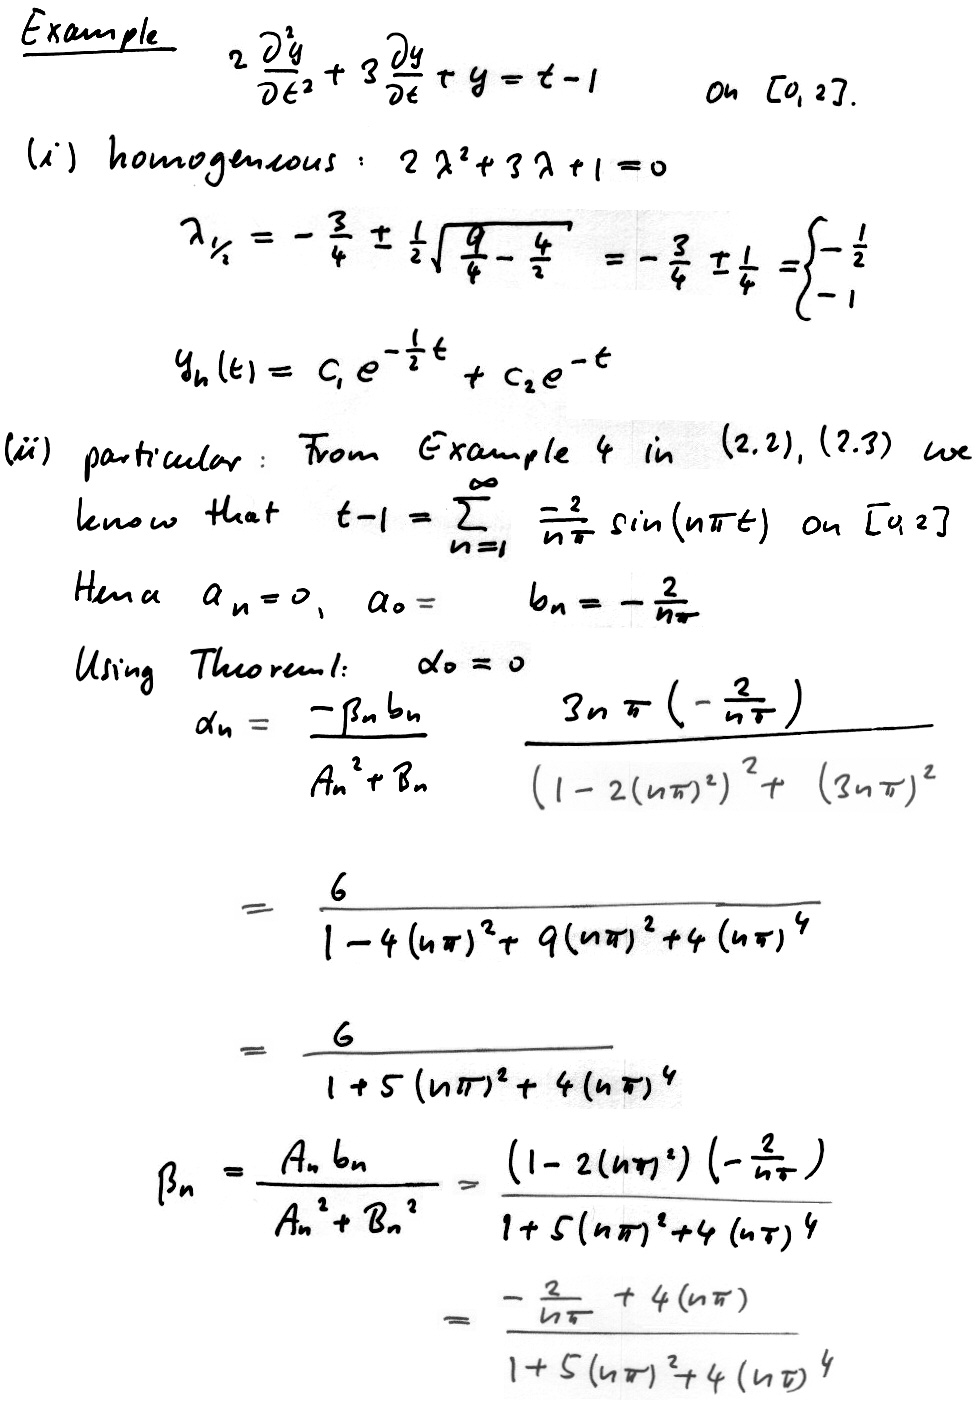 Example
2 ∂²y/∂t² + 3 ∂y/∂t + y = t-1 on [0, 2].
(i) homogeneous: 2λ² + 3λ + 1 = 0
λ₁/₂ = - 3/4 ± 1/2 √(9/4 - 4/2) = - 3/4 ± 1/4 = { - 1/2
-1
yₕ(t) = C₁ e^(-1/2 t) + C₂ e^(-t)
(ii) particular: From Example 4 in (2.2), (2.3) we
know that t-1 = ∑_{n=1}^{∞} -2/nπ sin(nπt) on [0, 2]
Hence aₙ = 0, a₀ = bₙ = - 2/nπ
Using Theorem 1: α₀ = 0
αₙ = -βₙ bₙ / Aₙ² + Bₙ 3nπ (- 2/nπ) / (1 - 2(nπ)²)² + (3nπ)²
= 6 / 1 - 4(nπ)² + 9(nπ)² + 4(nπ)⁴
= 6 / 1 + 5(nπ)² + 4(nπ)⁴
βₙ = Aₙ bₙ / Aₙ² + Bₙ² = (1 - 2(nπ)²) (- 2/nπ) / 1 + 5(nπ)² + 4(nπ)⁴
= - 2/nπ + 4(nπ) / 1 + 5(nπ)² + 4(nπ)⁴